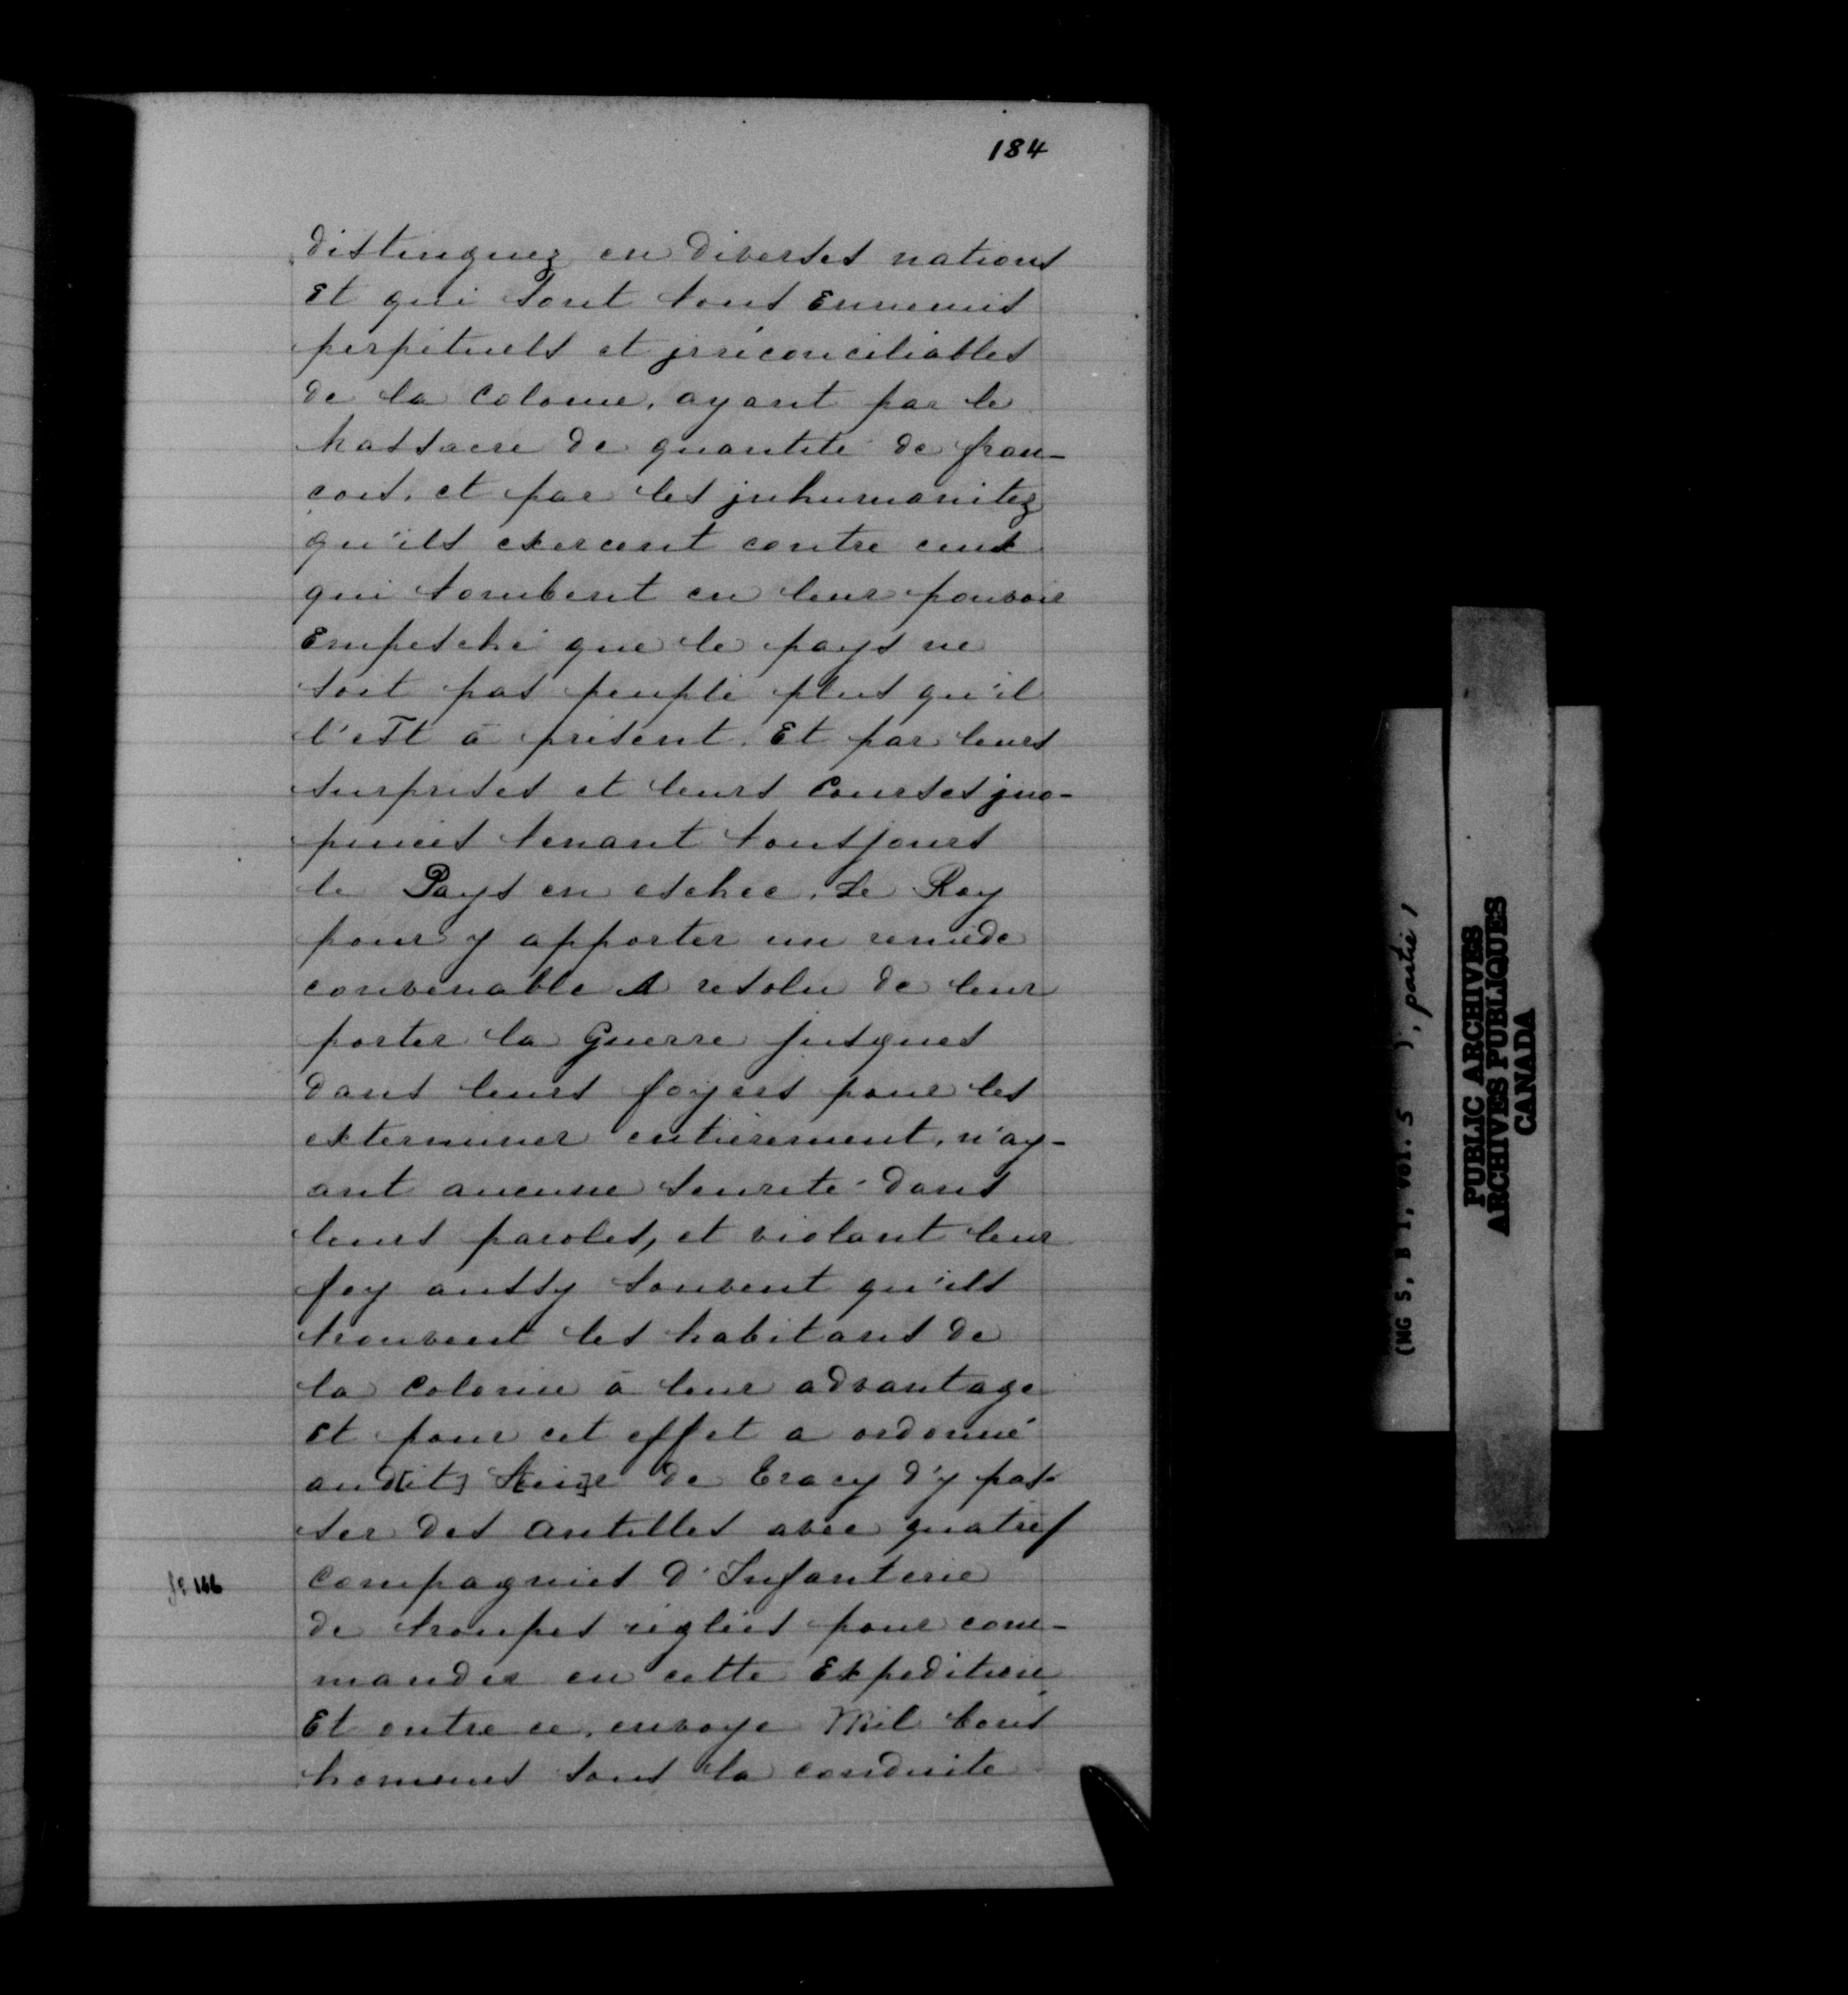 184
distinguez en diverses nations
Et qui sont tous Ennemis
perpétuels et jrréconciliables
de la Colonie, ayant par le
massacre de quantité de fran-
çois, et par les jnhumanitez
qu'ils exercent contre ceux
qui tombent en leur pouvoir
Empesché que le pays ne
soit pas peuplé plus qu'il
l'est à présent. Et par leurs
surprises et leurs Courses jno-
pinées tenant tousjours
le Pays en eschec. Le Roy
pour y apporter un remède
convenable A resolu de leur
porter la Guerre jusques
dans leurs foyers pour les
exterminer entièrement, n'ay-
ant aucune seureté dans
leurs paroles, et violant leur
foy aussy souvent qu'ils
trouvent les habitans de
la Colonie à leur advantage
Et pour cet effet a ordonné
aud[it] S[ieu]r de Tracy d'y pas-
ser des Antilles avec quatre/
f° 146
Compagnies d'Infanterie
de troupes réglées pour com-
mander en cette Expedition
Et outre ce, envoye Mil bons
hommes sous la conduite
(MG 5, B 1, vol. 5 ), partie 1
PUBLIC ARCHIVES
ARCHIVES PUBLIQUES
CANADA